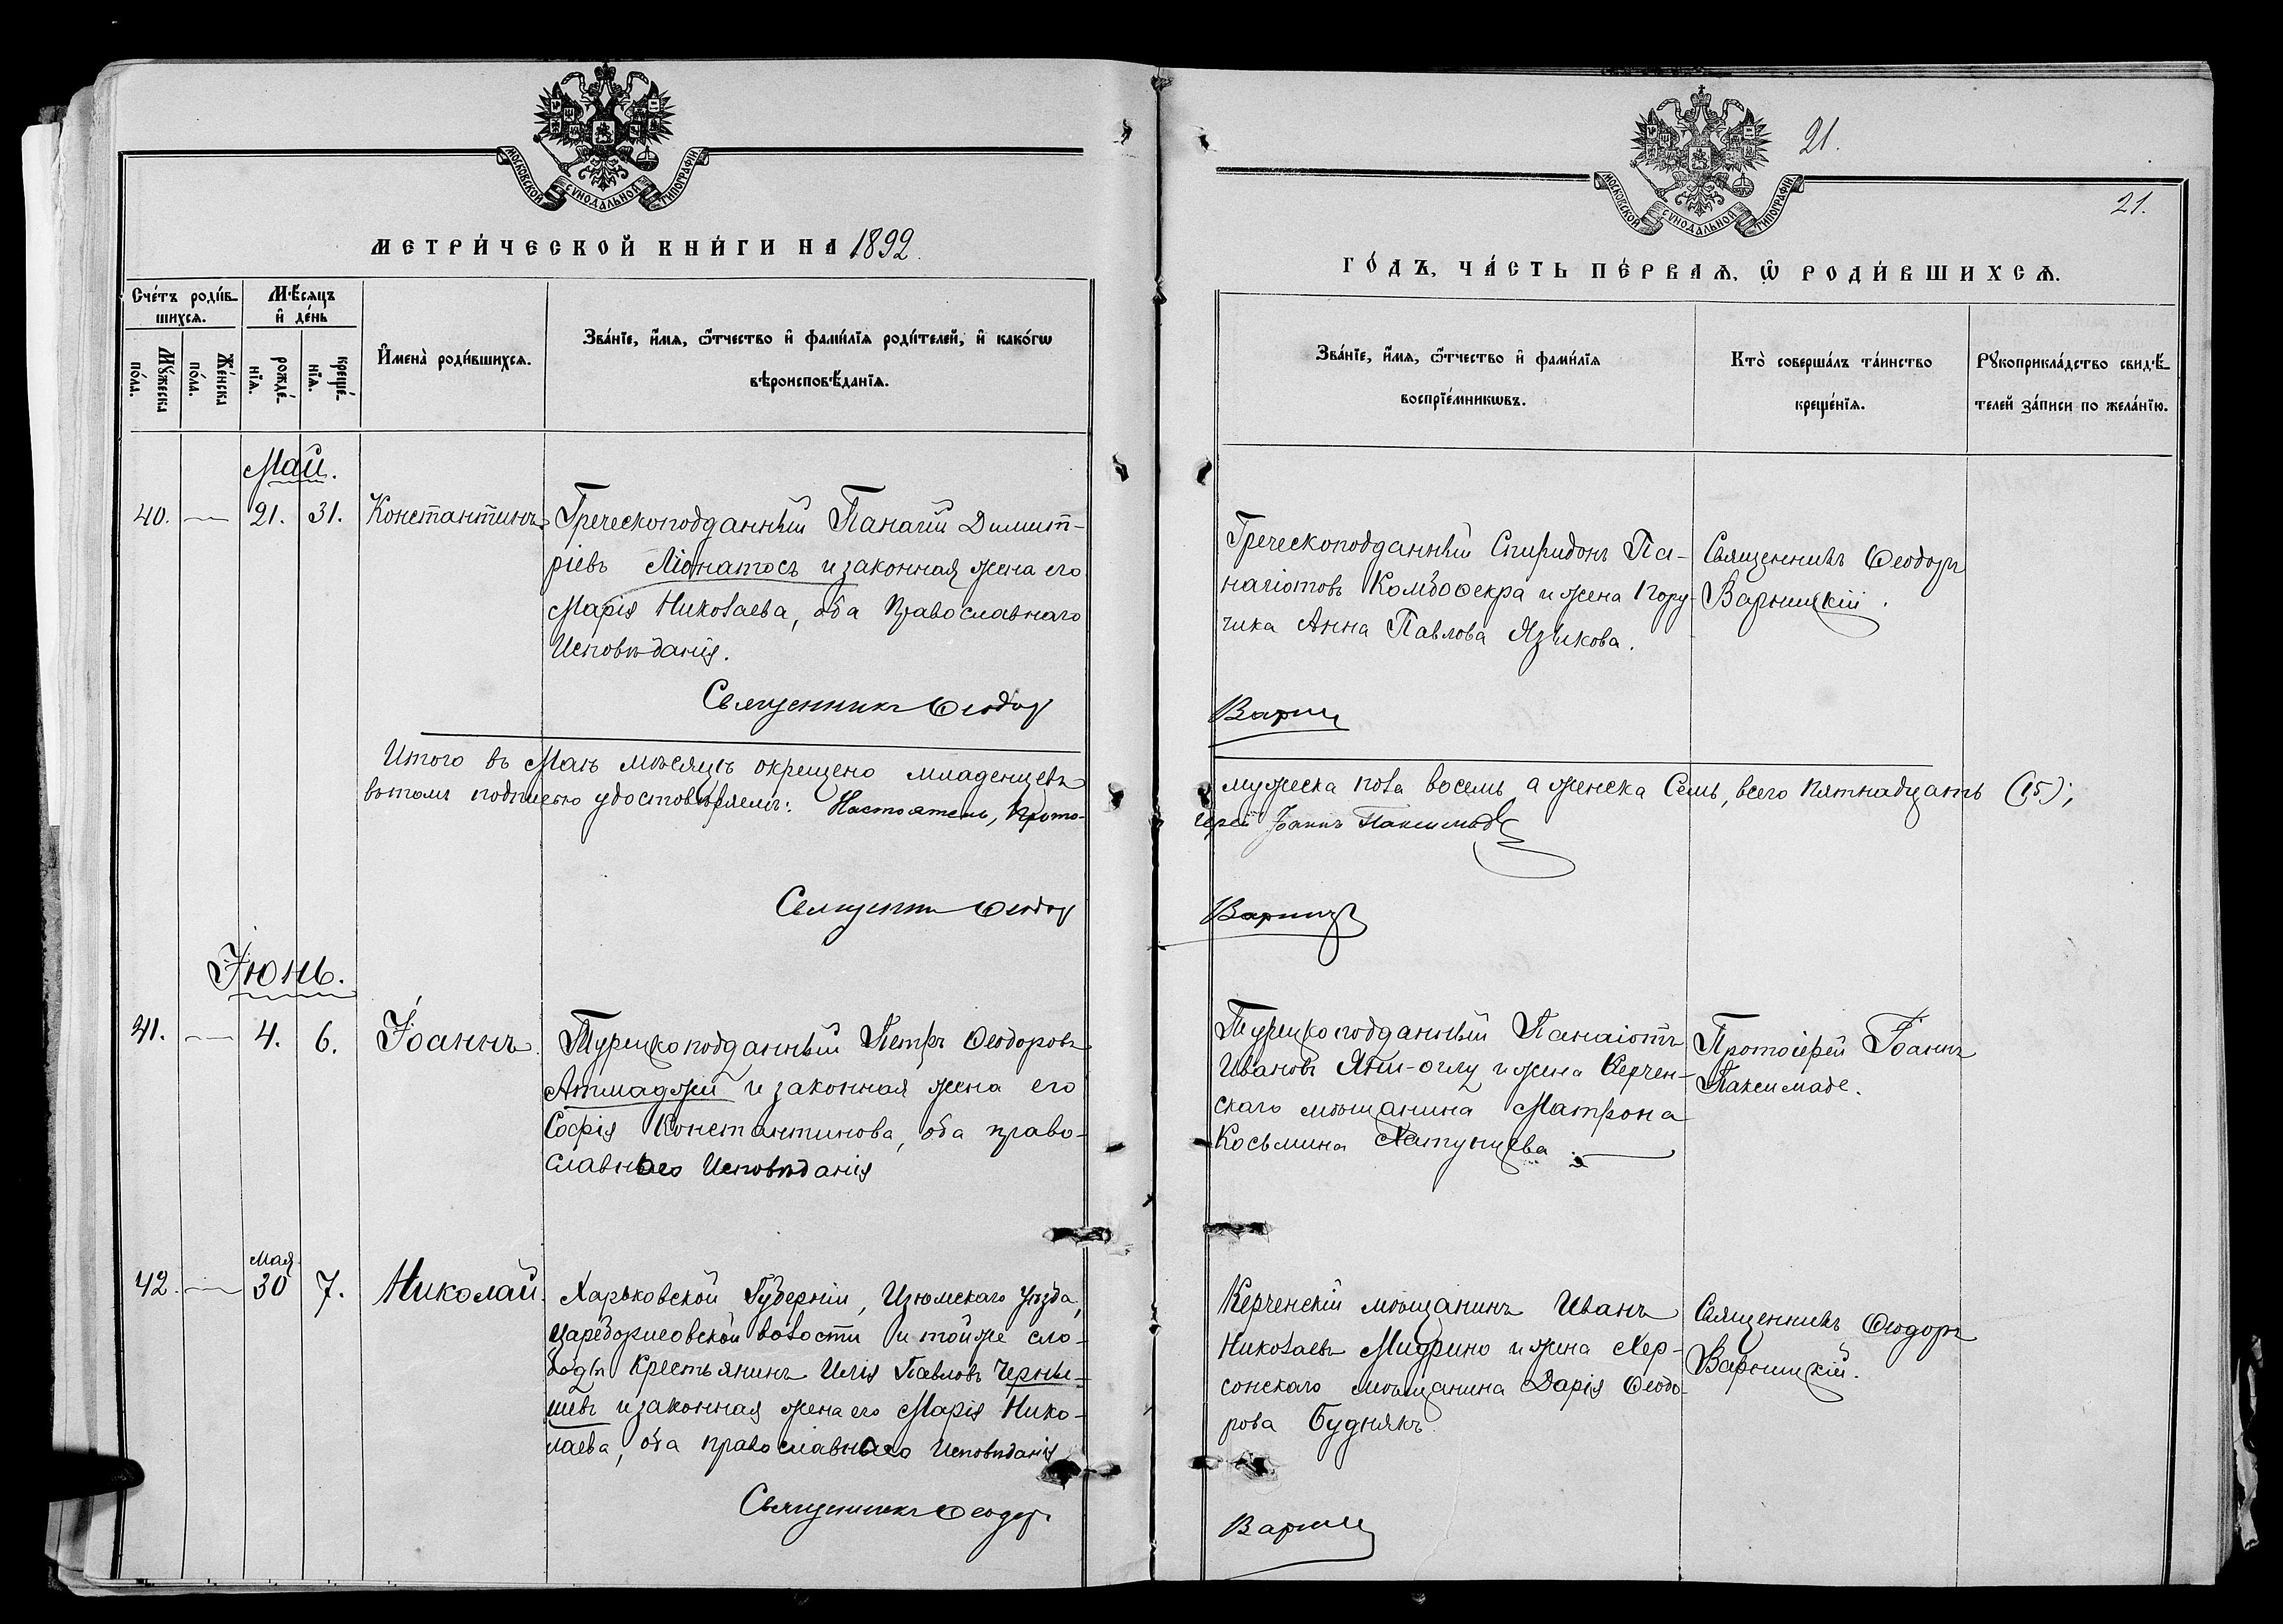 МОСКОВСКОЙ СѴНОДАЛЬНОЙ ТИПОГРАФІИ
МЕТРИ́ЧЕСКОЙ КНИ́ГИ НА 1892.
Сче́тъ роди́в-
шихсѧ.
Мѣ́сѧцъ
и҆ де́нь
Мꙋ́жеска
по́ла.
Же́нска
по́ла.
рожде́-
нїѧ.
креще́-
нїѧ.
И҆мена̀ роди́вшихсѧ.
Зва́нїе, и҆́мѧ, ѻ҆́тчество и҆ фами́лїѧ роди́телей, и҆ како́гѡ
вѣроисповѣ́данїѧ.
Май.
40. — 21. 31. Константинъ.
Греческоподданный Панагій Димит-
ріевъ Ліонатосъ и законная жена его
Марія Николаева, оба Православнаго
Исповѣданія.
Священникъ Ѳеодор
Итого въ Маѣ мѣсяцѣ окрещено младенцевъ
въ томъ подписью удостовѣряемъ: Настоятель, Прото-
Священник Ѳеодор
Іюнь.
41. — 4. 6. Іоаннъ.
Турецкоподданный Петръ Ѳеодоровъ
Атмаджи и законная жена его
Софія Константинова, оба право-
славнаго Исповѣданія
42. — Мая 30 7. Николай.
Харьковской Губерніи, Изюмскаго уѣзда,
Царeборисовской волости и той же сло-
боды Крестьянинъ Илія Павловъ Черны-
шевъ и законная жена его Марія Нико-
лаева, оба православнаго Исповѣданія
Священникъ Ѳеодор
21.
21.
МОСКОВСКОЙ СѴНОДАЛЬНОЙ ТИПОГРАФІИ
ГО́ДЪ, ЧА́СТЬ ПЕ́РВАѦ, Ѡ҆ РОДИ́ВШИХСѦ.
Зва́нїе, и҆́мѧ, ѻ҆́тчество и҆ фами́лїѧ
воспрїе́мникѡвъ.
Кто̀ соверша́лъ та́инство
креще́нїѧ.
Рꙋкоприкла́дство свидѣ́-
телей за́писи по жела́нїю.
Греческоподданный Спиридонъ Па-
нагіотовъ Комбоѳекра и жена Пору-
чика Анна Павлова Языкова.
Священникъ Ѳеодоръ
Варницкій.
Варниц
мужеска пола восемь а женска Семь, всего Пятнадцать (15);
іерей Іоаннъ Паксимаде
Варниц
Турецкоподданный Панаіотъ
Ивановъ Яни-оглу и жена Керчен-
скаго мѣщанина Матрона
Косьмина Хатунцева
Протоіерей Іоаннъ
Паксимаде.
Керченскій мѣщанинъ Иванъ
Николаевъ Мидрино и жена Хер-
сонскаго мѣщанина Дарія Ѳеодо-
рова Буднякъ.
Священникъ Ѳеодоръ
Варницкій.
Варниц